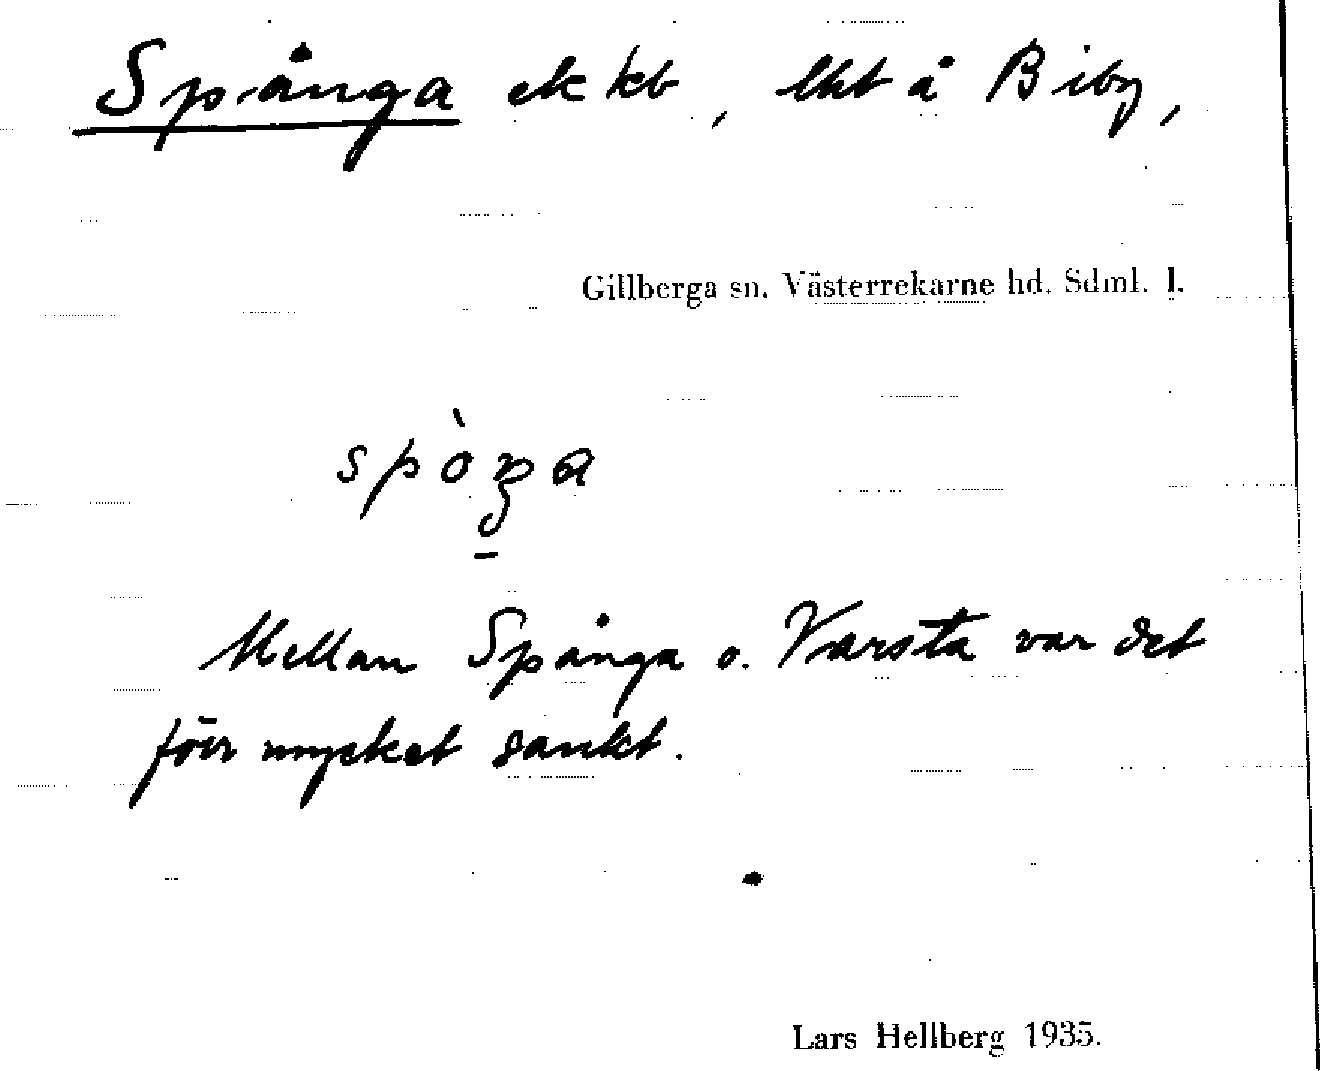 Spånga ek kb, lht å Biby,
Gillberga sn. Västerrekarne hd. Sdml. l.
Mellan Spånga o. Varsta var det
förr mycket sankt.
Lars Hellberg 1935.